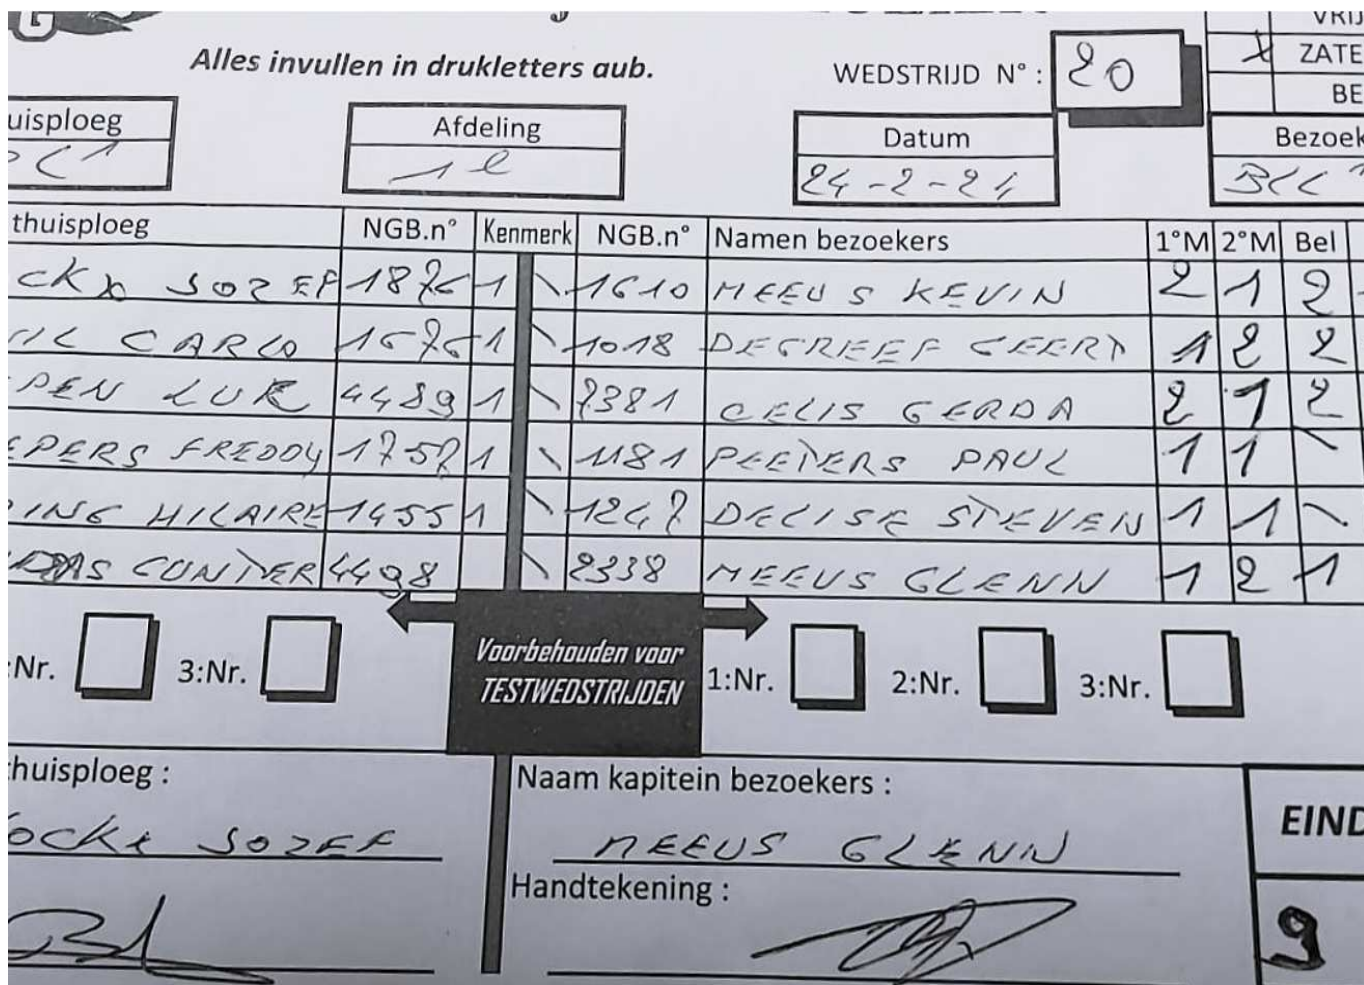 VRIJ
Alles invullen in drukletters aub.
WEDSTRIJD N° : 20
X ZATE
BE
uisploeg Afdeling Datum Bezoek
1e 24-2-24
thuisploeg NGB.n° Kenmerk NGB.n° Namen bezoekers 1°M 2°M Bel
CKX JOZEF 1 \ 1610 MEEUS KEVIN 2 1 2
CARLO 1 \ 1018 DEGREEF GEERT 1 2 2
PEN LUK 4489 1 \ 7381 CELIS GERDA 2 1 2
EPERS FREDDY 1757 1 \ 1181 PEETERS PAUL 1 1 \
ING HILAIRE 1455 1 \ 1247 DELISE STEVEN 1 1 \
GUNTER 4498 \ 2338 MEEUS GLENN 1 2 1
Nr. 3:Nr. Voorbehouden voor TESTWEDSTRIJDEN 1:Nr. 2:Nr. 3:Nr.
huisploeg : Naam kapitein bezoekers :
OCKX JOZEF MEEUS GLENN
EIND
Handtekening :
9